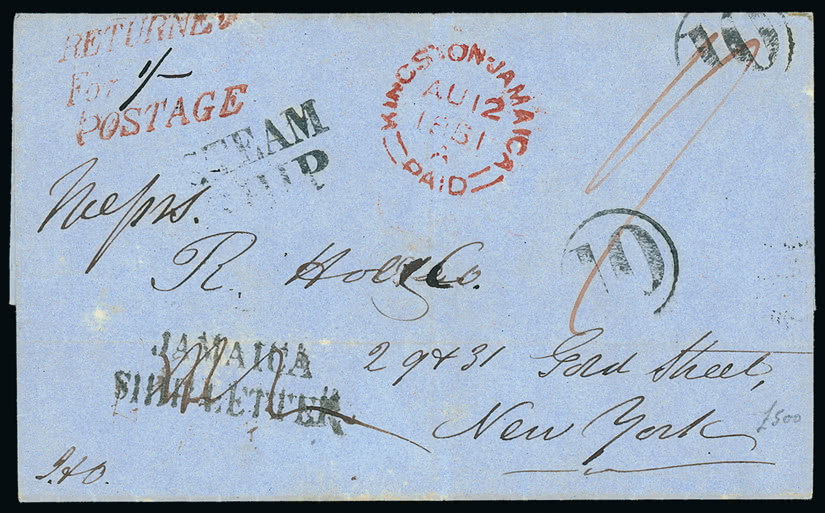 RETURNED
For 1/-
POSTAGE
STEAM
SHIP
KINGSTON-JAMAICA
AU 12
1851
A
PAID
10
10
Messrs.
R. Co.
JAMAICA
SHIP LETTER
29 & 31 Gold Street,
New York
£500